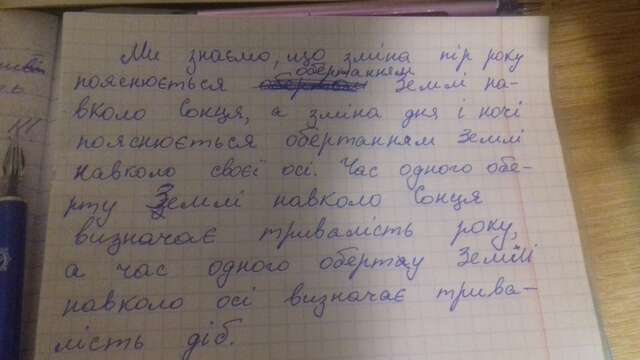 Ми знаємо, що зміна пір року
пояснюється обертанням Землі на-
вколо Сонця, а зміна дня і ночі
пояснюється обертанням Землі
навколо своєї осі. Час одного обе-
рту Землі навколо Сонця
визначає тривалість року,
а час одного оберту Землі
навколо осі визначає трива-
лість діб.